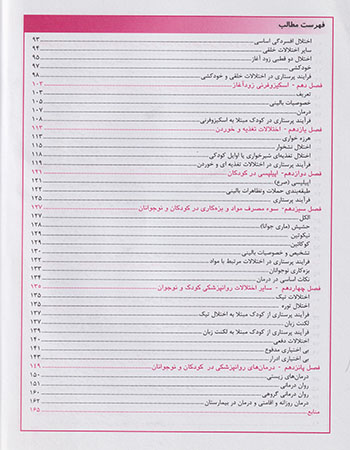 فهرست مطالب
اختلال افسردگی اساسی ۹۳
سایر اختلالات خلقی ۹۴
اختلال دو قطبی زود آغاز ۹۵
خودکشی ۹۶
فرایند پرستاری در اختلالات خلقی و خودکشی ۹۸
فصل دهم - اسکیزوفرنی زودآغاز ۱۰۳
تعریف ۱۰۳
خصوصیات بالینی ۱۰۵
درمان ۱۰۷
فرآیند پرستاری در کودک مبتلا به اسکیزوفرنی ۱۰۸
فصل یازدهم - اختلالات تغذیه و خوردن ۱۱۳
هرزه خواری ۱۱۳
اختلال نشخوار ۱۱۵
اختلال تغذیه‌ای شیرخواری یا اوایل کودکی ۱۱۸
فرآیند پرستاری در اختلالات تغذیه ای و خوردن ۱۱۹
فصل دوازدهم- اپیلپسی در کودکان ۱۲۱
اپیلپسی (صرع) ۱۲۱
طبقه‌بندی حملات وتظاهرات بالینی ۱۲۲
فرآیند پرستاری ۱۲۵
فصل سیزدهم- سوء مصرف مواد و بزه‌کاری در کودکان و نوجوانان ۱۲۷
الکل ۱۲۷
حشیش (ماری جوانا) ۱۲۸
نیکوتین ۱۲۹
کوکائین ۱۲۹
تشخیص و خصوصیات بالینی ۱۳۰
فرآیند پرستاری در اختلالات مرتبط با مواد ۱۳۲
بزه‌کاری نوجوانان ۱۳۳
نکات اساسی در درمان ۱۳۴
فصل چهاردهم - سایر اختلالات روانپزشکی کودک و نوجوان ۱۳۵
اختلالات تیک ۱۳۵
اختلال توره ۱۳۵
فرآیند پرستاری از کودک مبتلا به اختلال تیک ۱۳۷
لکنت زبان ۱۳۷
فرآیند پرستاری از کودک مبتلا به لکنت زبان ۱۳۹
اختلالات دفعی ۱۴۰
بی اختیاری مدفوع ۱۴۱
بی اختیاری ادرار ۱۴۳
فصل پانزدهم - درمان‌های روانپزشکی در کودکان و نوجوانان ۱۴۹
درمان‌های زیستی ۱۵۰
روان درمانی ۱۵۱
روان درمانی گروهی ۱۶۰
درمان روزانه و اقامتی و درمان در بیمارستان ۱۶۲
منابع ۱۶۵